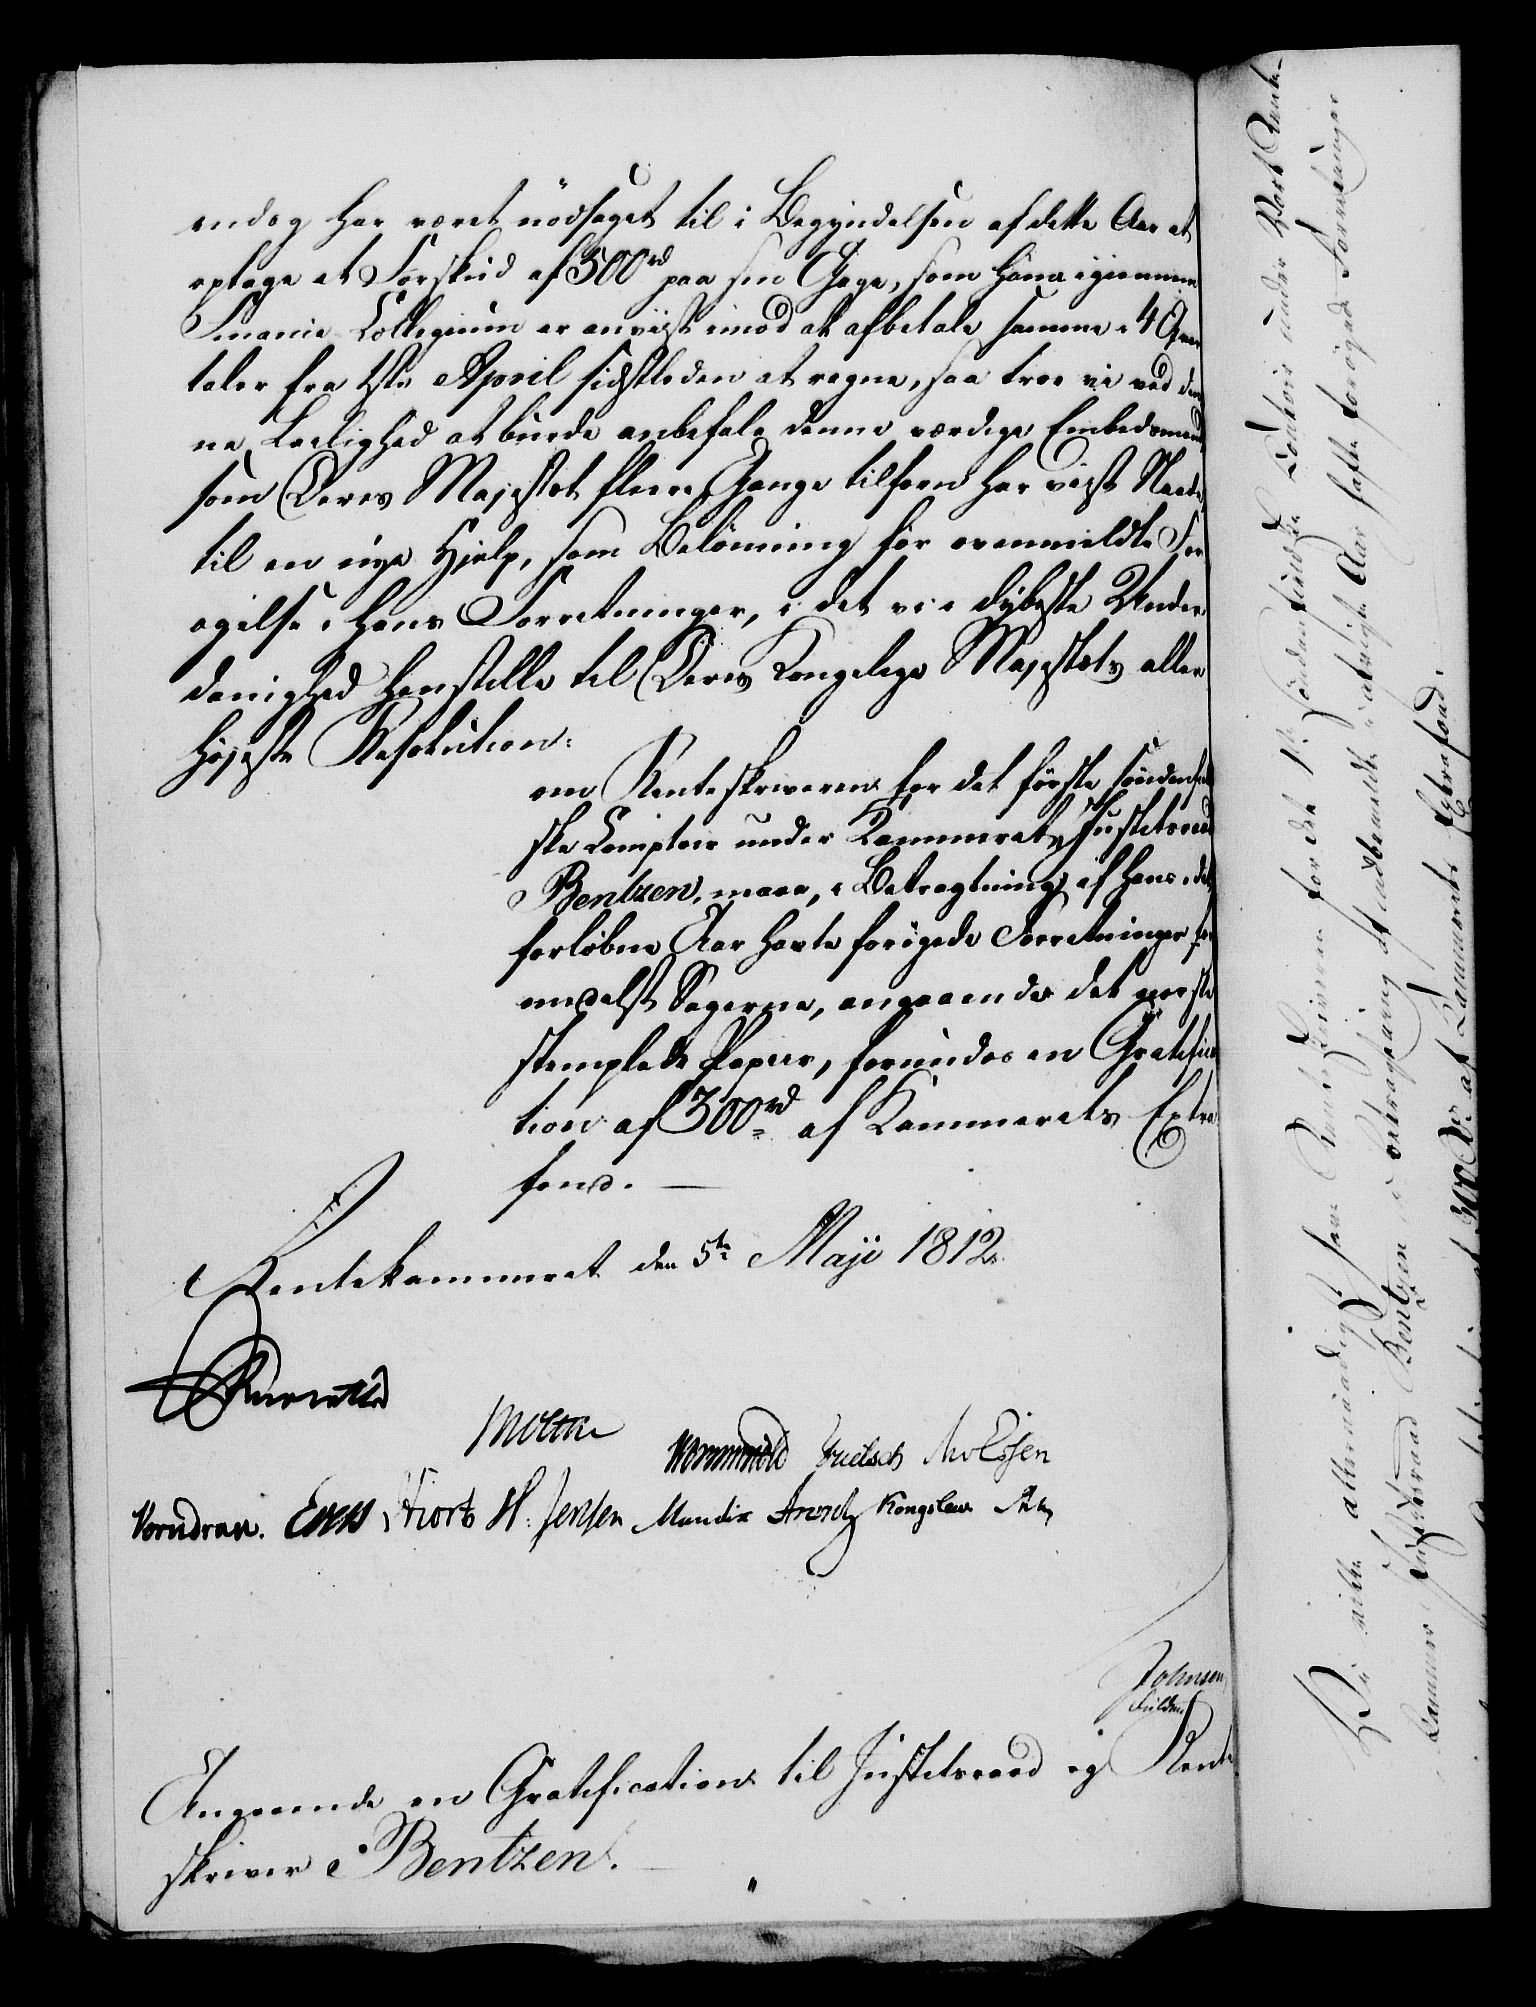 endog har været nödsaget til i Begyndelsen af dette Aar at
optage et Forskud af 500 rd paa sin Gage, som ham igiennem
Finants Collegium er anviist imod at afbetale samme i 4 Qvar
taler fra 1ste April sidstleden at regne, saa troe vi ved den
ne Leilighed at burde anbefale denne værdige Embedsmand
som Deres Majestæt fleere Gange tilforn har viist Naade
til en nye Hjelp, som Belønning for ovenmeldte For
ögelse i hans Forretninger, i det vi i dybeste Under
danighed henstille til Deres Kongelige Majestæts aller
höjeste Resolution:
om Renteskriveren for det förste söndenfield
ske Comptoir under Kammeret, Justitsraad
Bentzen, maae, i Betragtning af hans i det
forløbne Aar havte forögede Forretninger for
medelst Sagerne, angaaende det norske
stemplede Papiir, forundes en Gratifica
tion af 300 rd af Kammerets Extra
fond. —
Rentekammeret den 5te Maji 1812.
Moltke
Wormskiold
Vorndran. Hiort H. Jensen Mandix Arentz Kongslew
Johnsen
Angaaende en Gratification til Justitsraad og Rente
skriver Bentzen.
De ville allernaadigst have Renteskriveren for det 1ste söndenfieldske Contoir under Vort Rente-
kammer Justitsraad Bentzen i betragtning af endbemeldte i afvigte Aar havte forögede Forretninger
300 Rd af Kammerets Extrafond.